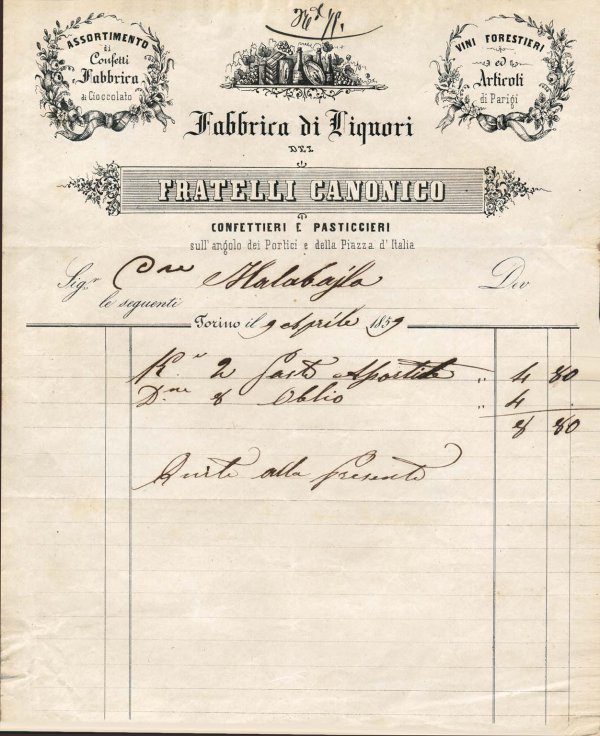 ASSORTIMENTO
di
Confetti
Fabbrica
di Cioccolato
VINI FORESTIERI
ed
Articoli
di Parigi
Fabbrica di Liquori
DEI
FRATELLI CANONICO
CONFETTIERI E PASTICCIERI
sull'angolo dei Portici e della Piazza d'Italia
Sig.r Malabajla Dev
le seguenti
Torino il 9 Aprile 1859
2 Paste 4 80
8 4
8 80
alla presente